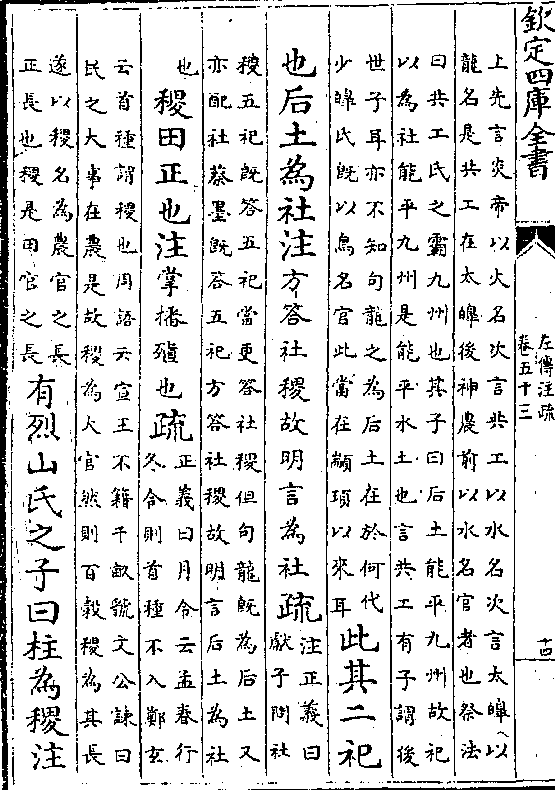 欽定四庫全書
左傳注疏
卷五十三
十四
上先言炎帝以火名次言共工以水名次言太皥以
龍名是共工在太皥後神農前以水名官者也祭法
曰共工氏之霸九州也其子曰后土能平九州故祀
以為社能平九州是能平水土也言共工有子謂後
世子耳亦不知句龍之為后土在於何代
少皥氏既以鳥名官此當在顓頊以來耳
此其二祀
也后土為社注方答社稷故明言為社疏
注正義曰
獻子問社
稷五祀既答五祀當更答社稷但句龍既為后土又
亦配社蔡墨既答五祀方答社稷故明言后土為社
也
稷田正也注掌播殖也疏
正義曰月令云孟春行
冬令則首種不入鄭玄
云首種謂稷也周語云宣王不籍千畝虢文公諫曰
民之大事在農是故稷為大官然則百穀稷為其長
遂以稷名為農官之長
正長也稷是田官之長
有烈山氏之子曰柱為稷注